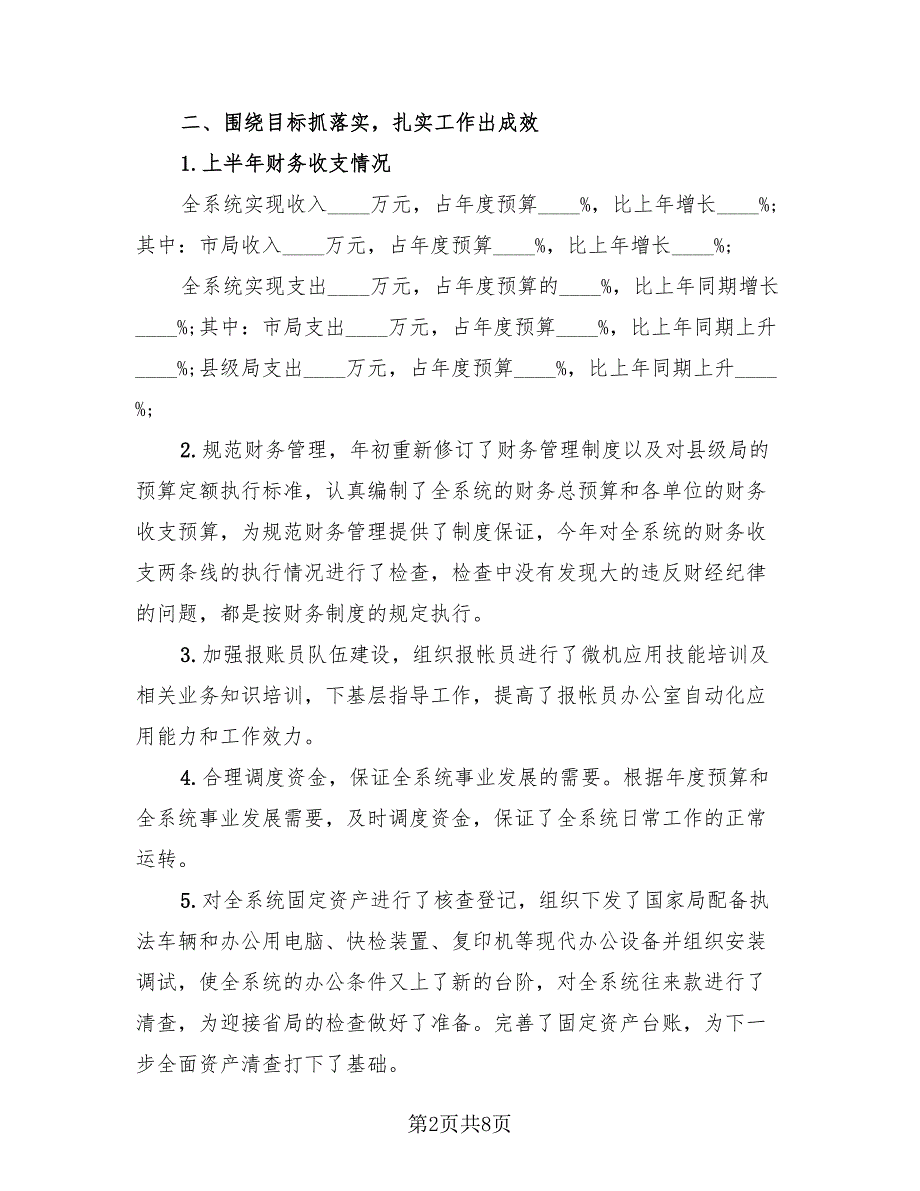 二、围绕目标抓落实，扎实工作出成效
1.上半年财务收支情况
全系统实现收入____万元，占年度预算____%，比上年增长____%;
其中：市局收入____万元，占年度预算____%，比上年增长____%;
全系统实现支出____万元，占年度预算的____%，比上年同期增长
____%;其中：市局支出____万元，占年度预算____%，比上年同期上升
____%;县级局支出____万元，占年度预算____%，比上年同期上升____
%;
2.规范财务管理，年初重新修订了财务管理制度以及对县级局的
预算定额执行标准，认真编制了全系统的财务总预算和各单位的财务
收支预算，为规范财务管理提供了制度保证，今年对全系统的财务收
支两条线的执行情况进行了检查，检查中没有发现大的违反财经纪律
的问题，都是按财务制度的规定执行。
3.加强报账员队伍建设，组织报帐员进行了微机应用技能培训及
相关业务知识培训，下基层指导工作，提高了报帐员办公室自动化应
用能力和工作效力。
4.合理调度资金，保证全系统事业发展的需要。根据年度预算和
全系统事业发展需要，及时调度资金，保证了全系统日常工作的正常
运转。
5.对全系统固定资产进行了核查登记，组织下发了国家局配备执
法车辆和办公用电脑、快检装置、复印机等现代办公设备并组织安装
调试，使全系统的办公条件又上了新的台阶，对全系统往来款进行了
清查，为迎接省局的检查做好了准备。完善了固定资产台账，为下一
步全面资产清查打下了基础。
第2页共8页